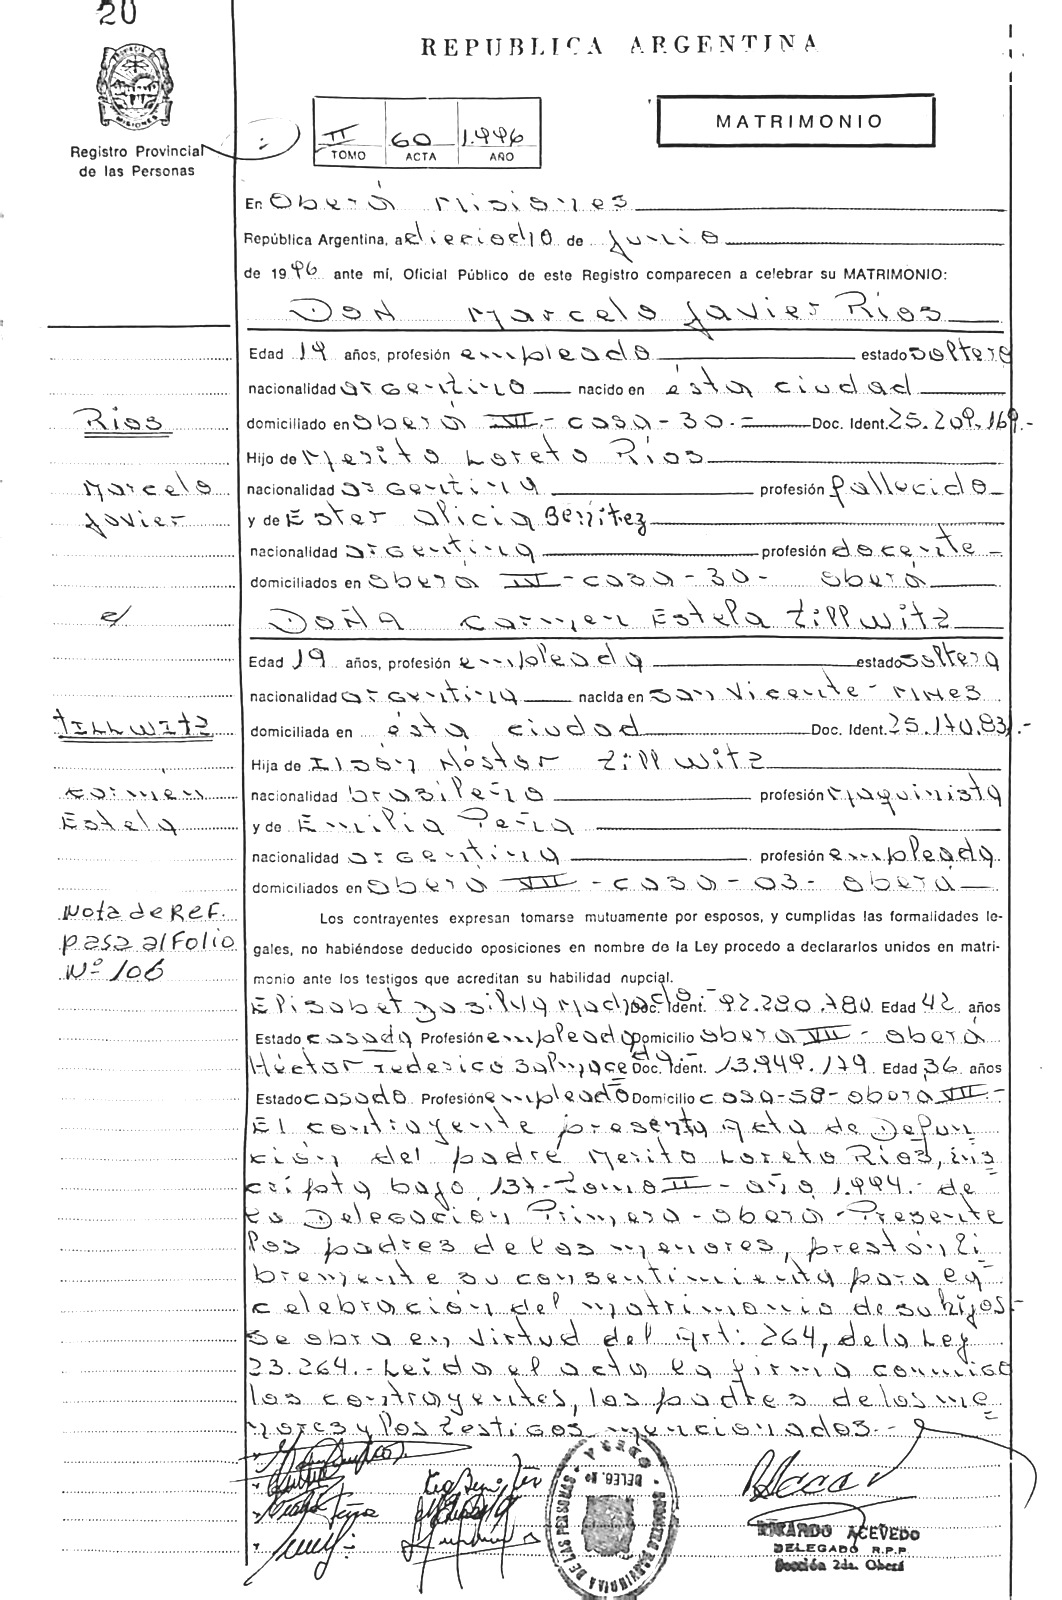 20
REPUBLICA ARGENTINA
Registro Provincial
de las Personas
II 60 1.996
TOMO ACTA AÑO
MATRIMONIO
En Oberá Misiones
República Argentina, a dieciocho de Junio
de 1996 ante mí, Oficial Público de este Registro comparecen a celebrar su MATRIMONIO:
DON Marcelo Javier Ríos
Edad 19 años, profesión empleado estado soltero
nacionalidad argentino nacido en ésta ciudad
Ríos
domiciliado en Oberá VII - casa - 30.= Doc. Ident. 25.209.169.-
Hijo de Merito Loreto Ríos
Marcelo
nacionalidad argentina profesión fallecido
Javier
y de Ester Alicia Benítez
nacionalidad argentina profesión docente -
domiciliados en Oberá - casa - 30 - Oberá
c/
DOÑA Carmen Estela Zillwitz
Edad 19 años, profesión empleada estado soltera
nacionalidad argentina nacida en San Vicente - Mnes
ZILLWITZ
domiciliada en ésta ciudad Doc. Ident. 25.170.83 .-
Hija de Néstor Zillwitz
Carmen
nacionalidad brasileño profesión maquinista
Estela
y de Emilia Peña
nacionalidad argentina profesión empleada.
domiciliados en Oberá VII - casa - 03 - Oberá
Nota de Ref.
pasa al Folio
Nº 106
Los contrayentes expresan tomarse mutuamente por esposos, y cumplidas las formalidades le-
gales, no habiéndose deducido oposiciones en nombre de la Ley procedo a declararlos unidos en matri-
monio ante los testigos que acreditan su habilidad nupcial.
Doc. Ident. 92.280.780 Edad 42 años
Estado casada Profesión empleada Domicilio Oberá VII - Oberá
Héctor Federico Doc. Ident. 13.949.179 Edad 36 años
Estado casado Profesión empleado Domicilio casa - 58 - Oberá VII -
El contrayente presenta Acta de Defun
ción del padre Merito Loreto Ríos, ins
cripta bajo 137 - Tomo II - año 1.994.- de
la Delegación Primera - Oberá - Presente
los padres de los menores, prestan li
bremente su consentimiento para la
celebración del matrimonio de su hijos.-
Se obra en virtud del Art: 264, de la Ley
23.264.- Leída el acta la firma conmigo
los contrayentes, los padres de los me
nores y los testigos mencionados.-
REGISTRO PROVINCIAL DE LAS PERSONAS - OBERÁ
DELEG. Nº
RICARDO ACEVEDO
DELEGADO R.P.P.
Sección 2da. Oberá